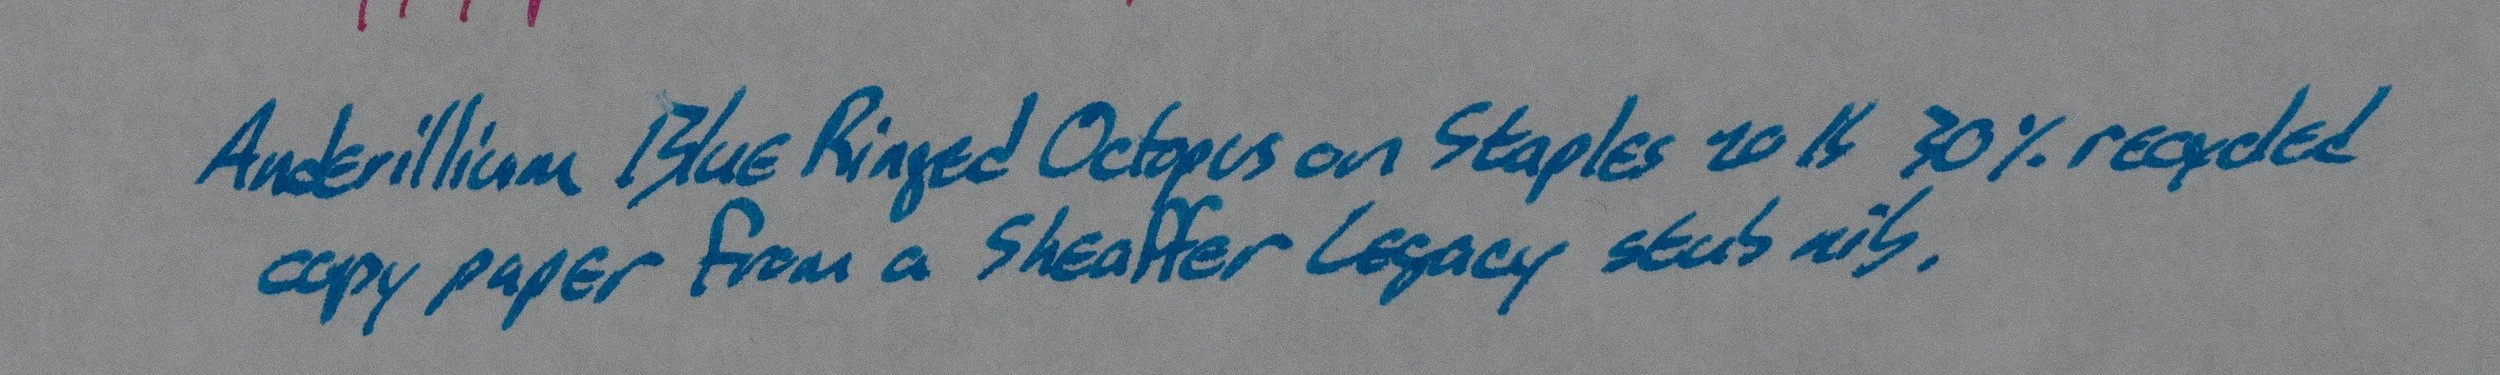 Anderillium Blue Ringed Octopus on Staples 20 lb 30% recycled
copy paper from a Sheaffer Legacy stub nib.